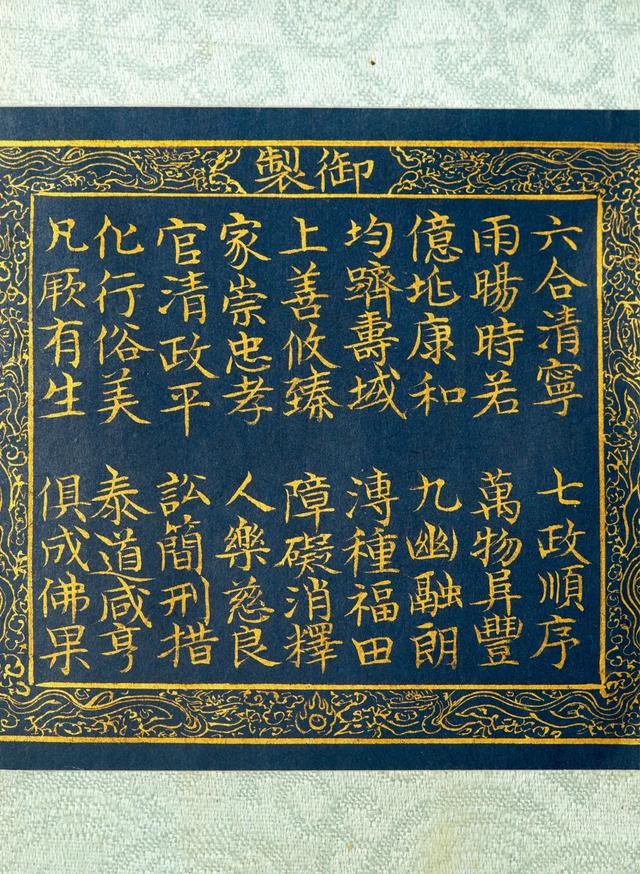 御製
六合清寧 七政順序
雨暘時若 萬物阜豐
億兆康和 九幽融朗
均躋壽域 溥種福田
上善攸臻 障礙消釋
家崇忠孝 人樂慈良
官清政平 訟簡刑措
化行俗美 泰道咸亨
凡厥有生 俱成佛果